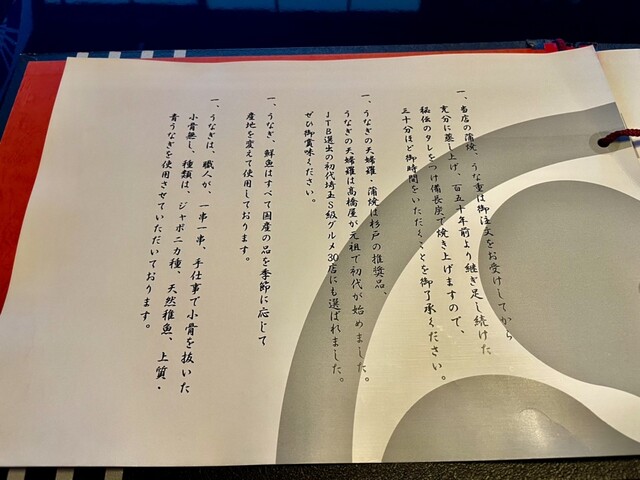 一、当店の蒲焼、うな重は御注文をお受けしてから
充分に蒸し上げ、百五十年前より継ぎ足し続けた
秘伝のタレをつけ備長炭で焼き上げますので、
三十分ほど御時間をいただくことを御了承ください。
一、うなぎの天婦羅・蒲焼は杉戸の推奨品、
うなぎの天婦羅は高橋屋が元祖で初代が始めました。
JTB選出の初代埼玉S級グルメ30店にも選ばれました。
ぜひ御賞味ください。
一、うなぎ、鮮魚はすべて国産の品を季節に応じて
産地を変えて使用しております。
一、うなぎは、職人が、一串一串、手仕事で小骨を抜いた
小骨無し、種類は、ジャポニカ種、天然稚魚、上質・
青うなぎを使用させていただいております。